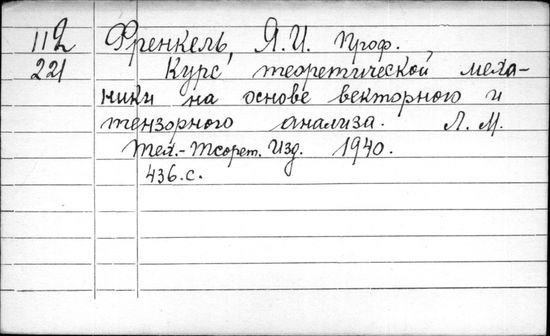 112 Френкель, Я.И. Проф.
221 Курс теоретической меха-
ники на основе векторного и
тензорного анализа. Л. М.
Тех.-Теорет. Изд. 1940.
436.с.